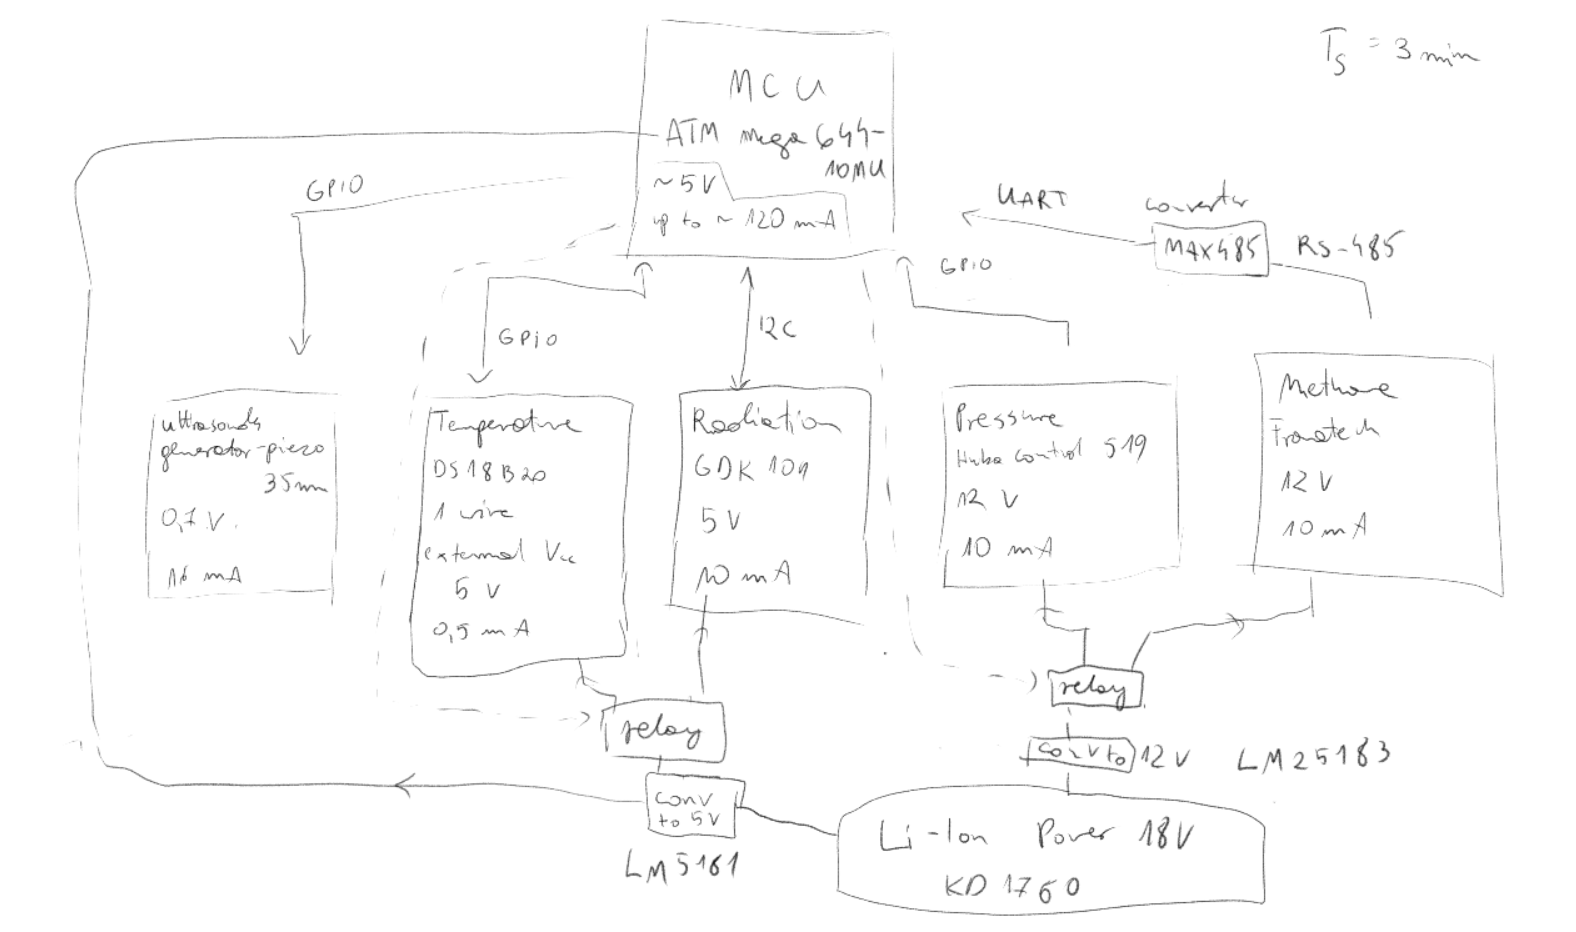 Ts = 3 min
MCU
ATM mega 644-
10MU
~5V
up to ~ 120 mA
GPIO
UART
converter
MAX485
RS-485
GPIO
GPiO
I2C
ultrasounds
generator-piezo
35mm
0,7 V.
16 mA
Temperature
DS18B20
1 wire
external Vcc
5 V
0,5 mA
Radiation
GDK 101
5V
10 mA
Pressure
Huba Control 519
12 V
10 mA
Methane
Franatech
12V
10 mA
relay
relay
conv to 12V
LM25183
conv
to 5V
LM5161
Li-Ion Power 18V
KD 1760